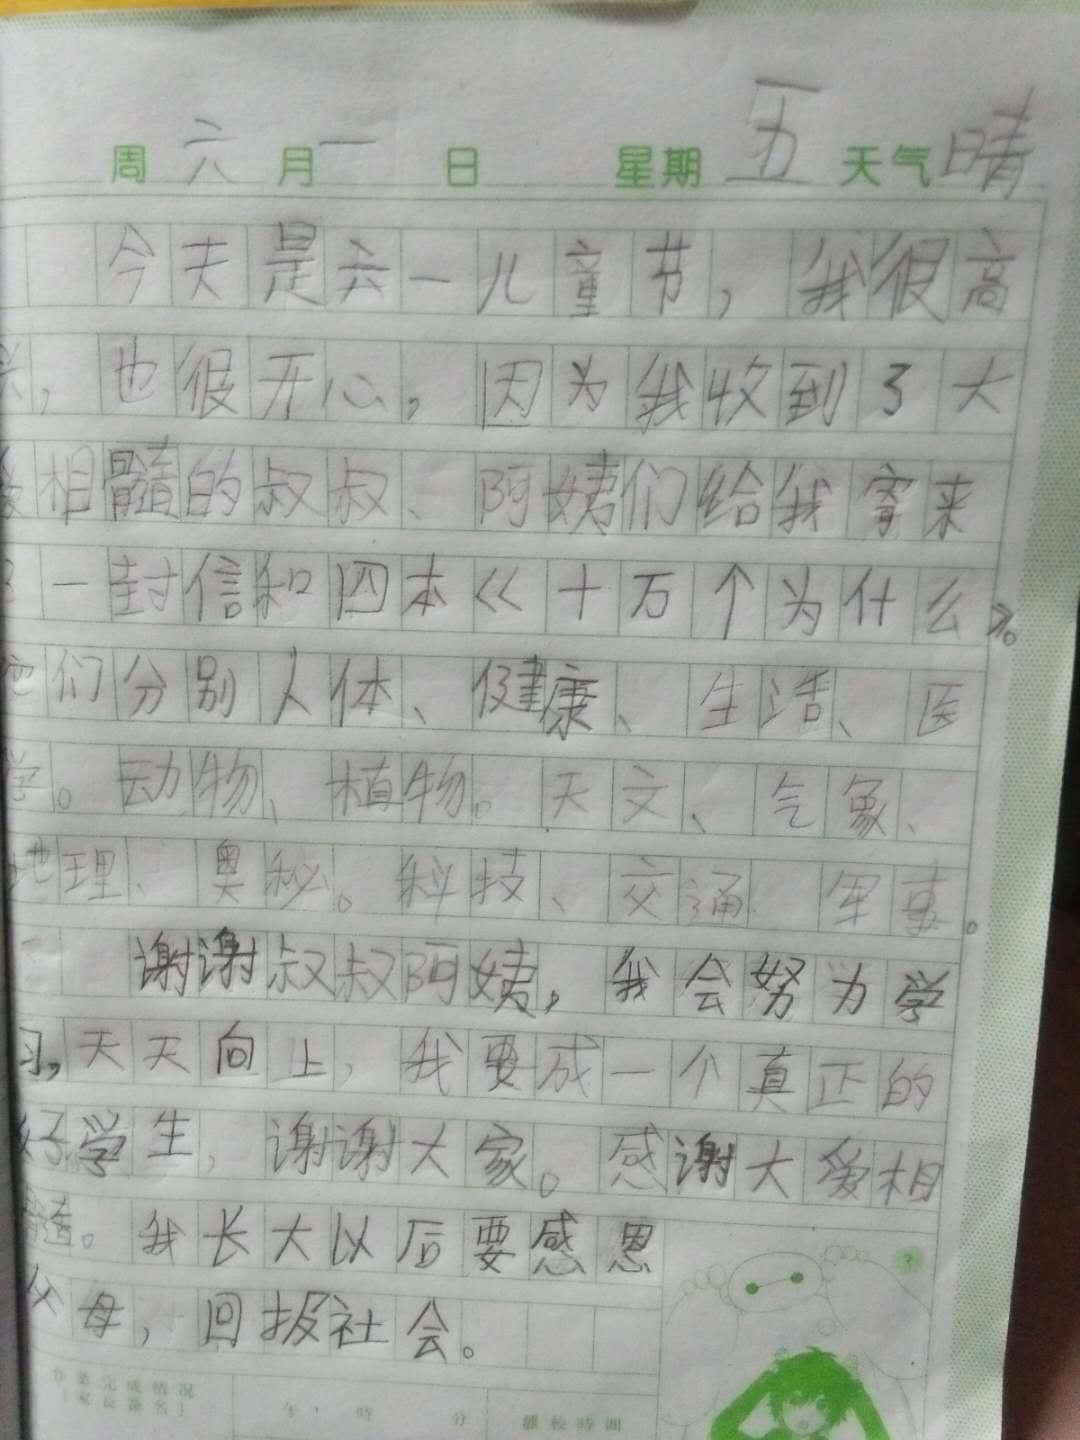 周 六 月 一 日 星期 五 天气 晴
今天是六一儿童节，我很高
兴，也很开心，因为我收到了大
爱相髓的叔叔、阿姨们给我寄来
一封信和四本《十万个为什么》。
他们分别人体、健康、生活、医
学。动物、植物。天文、气象、
地理、奥秘。科技、交通 军事。
谢谢叔叔阿姨，我会努为学
习，天天向上，我要成一个真正的
好学生，谢谢大家。感谢大爱相
髓。我长大以后要感恩
父母，回报社会。
作业完成情况
（家长签名）
午， 时 分
离校时间